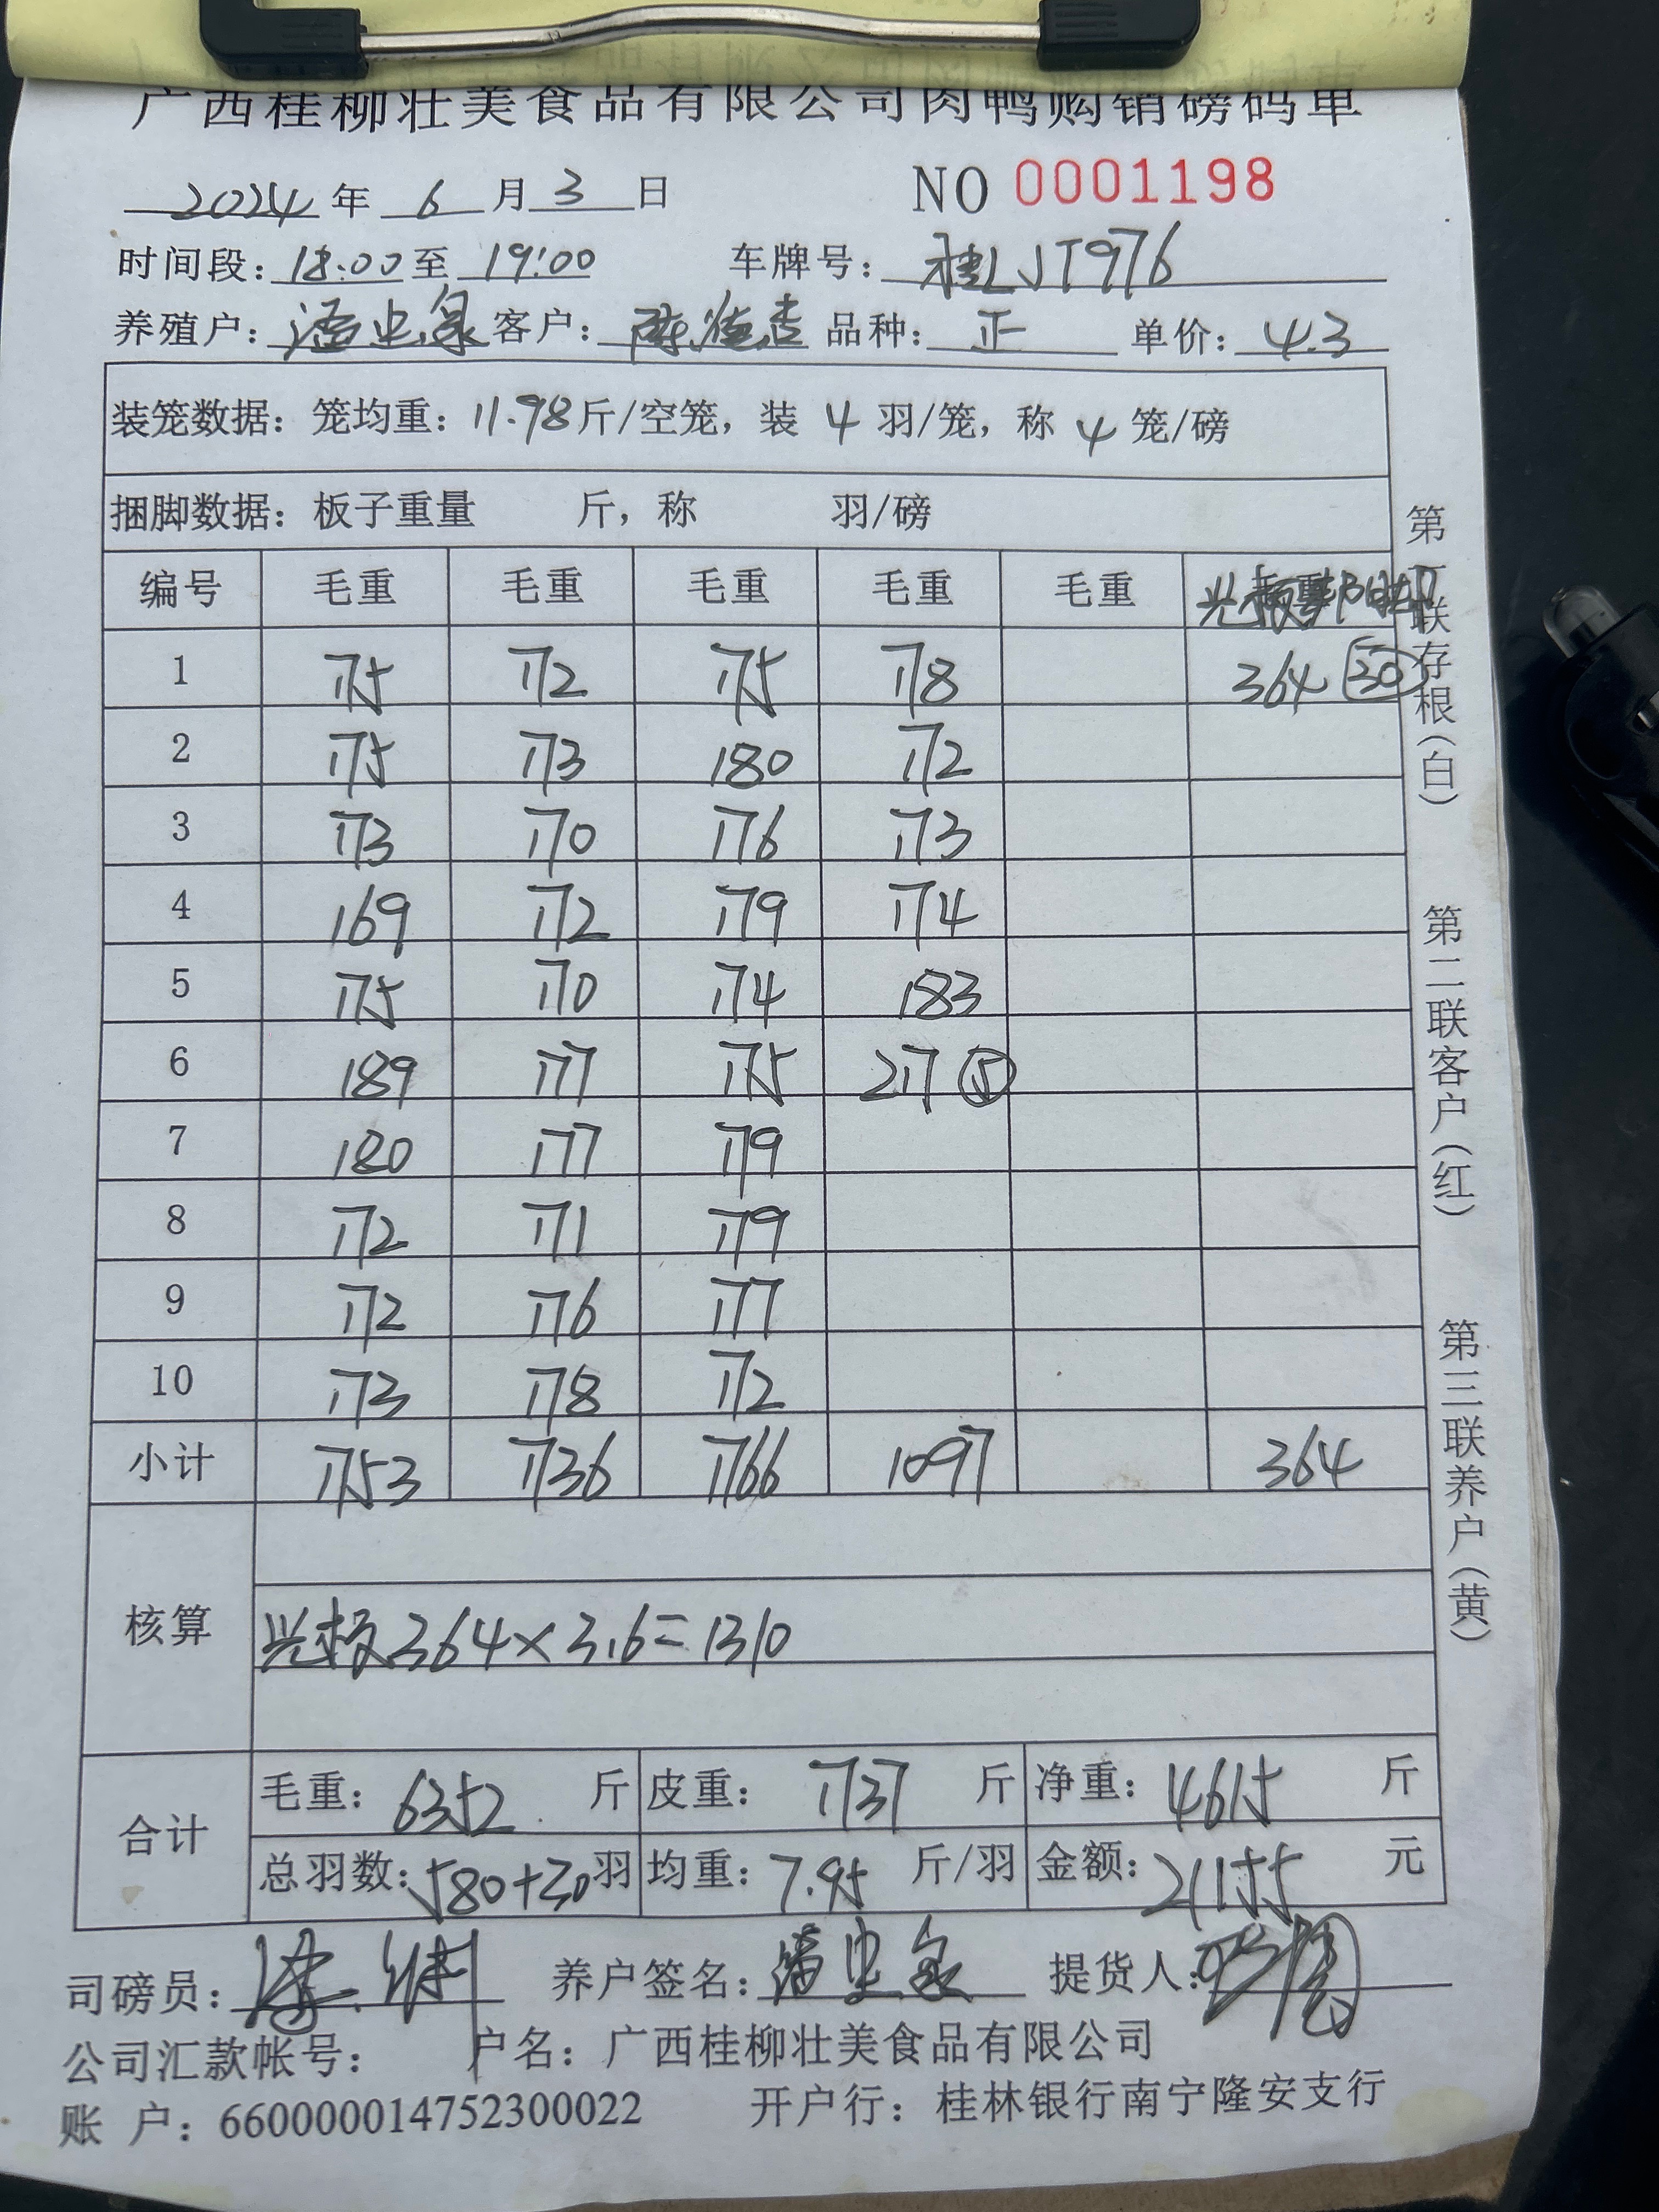 广西桂柳壮美食品有限公司肉鸭购销磅码单
2024 年 6 月 3 日 NO 0001198
时间段: 18:00 至 19:00 车牌号: 桂LJT976
养殖户: 客户: 品种: 正 单价: 4.3
装笼数据: 笼均重: 11.98 斤/空笼, 装 4 羽/笼, 称 4 笼/磅
捆脚数据: 板子重量 斤, 称 羽/磅
编号 毛重 毛重 毛重 毛重 毛重
1 175 172 175 178 364 30
2 175 173 180 172
3 173 170 176 173
4 169 172 179 174
5 175 170 174 183
6 189 177 175 217 5
7 180 177 179
8 172 171 179
9 172 176 177
10 173 178 172
小计 1753 1736 1766 1097 364
核算
兴板364×3.6=1310
合计 毛重: 6352 斤 皮重: 1737 斤 净重: 4615 斤
总羽数: 580+30 羽 均重: 7.95 斤/羽 金额: 21155 元
司磅员: 养户签名: 提货人:
公司汇款帐号: 户名: 广西桂柳壮美食品有限公司
账 户: 660000014752300022 开户行: 桂林银行南宁隆安支行
第一联存根(白)
第二联客户(红)
第三联养户(黄)